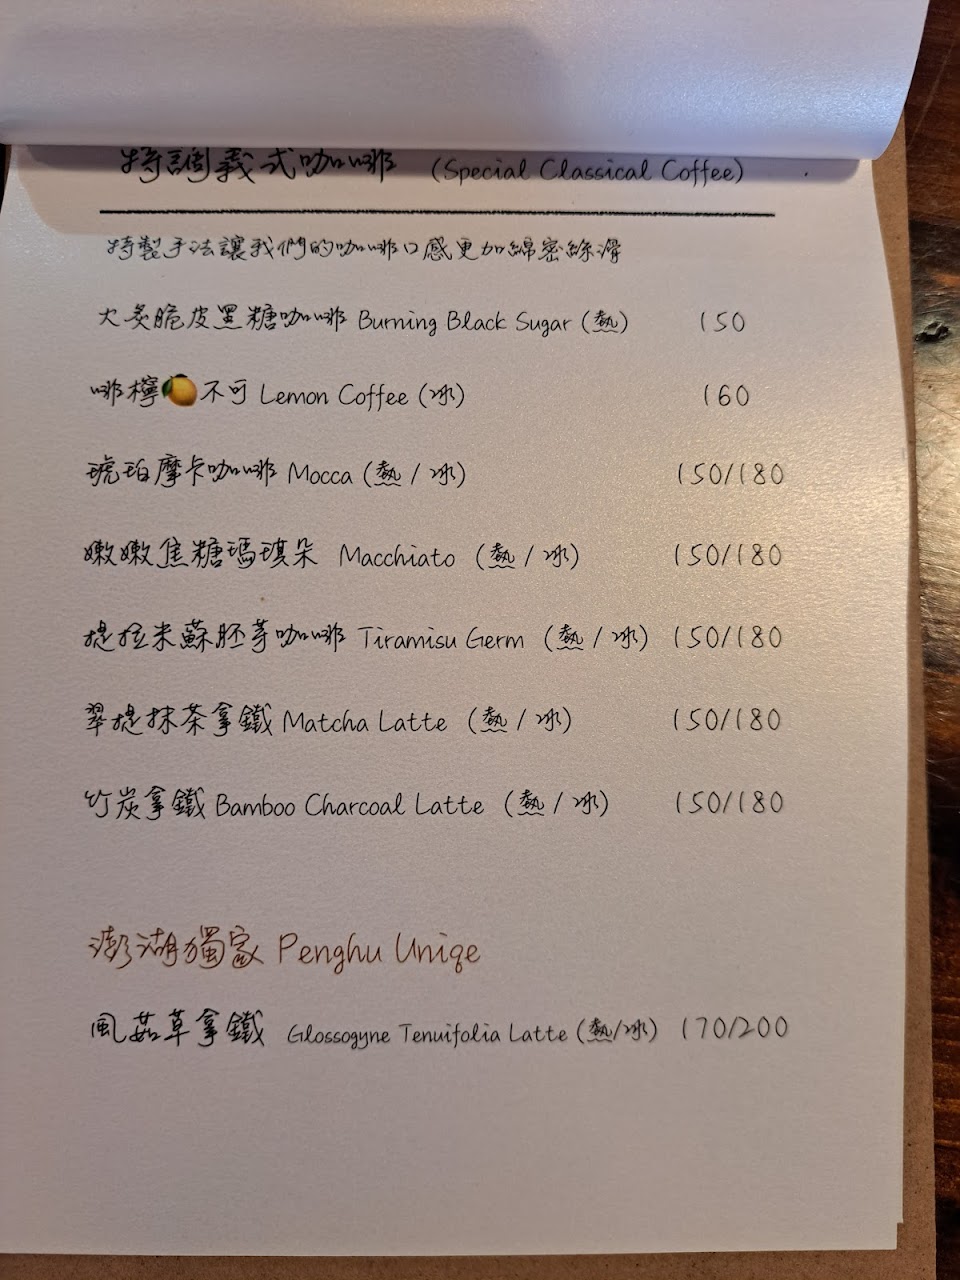 特調義式咖啡 (Special Classical Coffee)
特製手法讓我們的咖啡口感更加綿密絲滑
火炙脆皮黑糖咖啡 Burning Black Sugar (熱) 150
啡檸🍋不可 Lemon Coffee (冰) 160
琥珀摩卡咖啡 Mocca (熱 / 冰) 150/180
嫩嫩焦糖瑪琪朵 Macchiato (熱 / 冰) 150/180
提拉米蘇胚芽咖啡 Tiramisu Germ (熱 / 冰) 150/180
翠提抹茶拿鐵 Matcha Latte (熱 / 冰) 150/180
竹炭拿鐵 Bamboo Charcoal Latte (熱 / 冰) 150/180
澎湖獨家 Penghu Uniqe
風茹草拿鐵 Glossogyne Tenuifolia Latte (熱/冰) 170/200